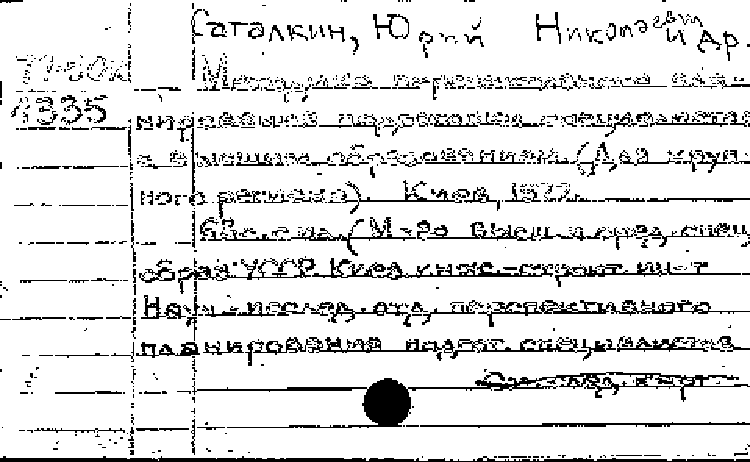 Саталкин, Юрий Николаевич
и др.
77-80к
4335
Методика перспективного пла-
нирования подготовки специалистов
с высшим образованием. (Для круп-
ного региона). Киев, 1977.
63с. с ил. (М-во высш. и сред. спец.
образ. УССР. Киев. инж.-строит. ин-т
Науч.-исслед. отд. перспективного
планирования подгот. специалистов
См. след. карт.